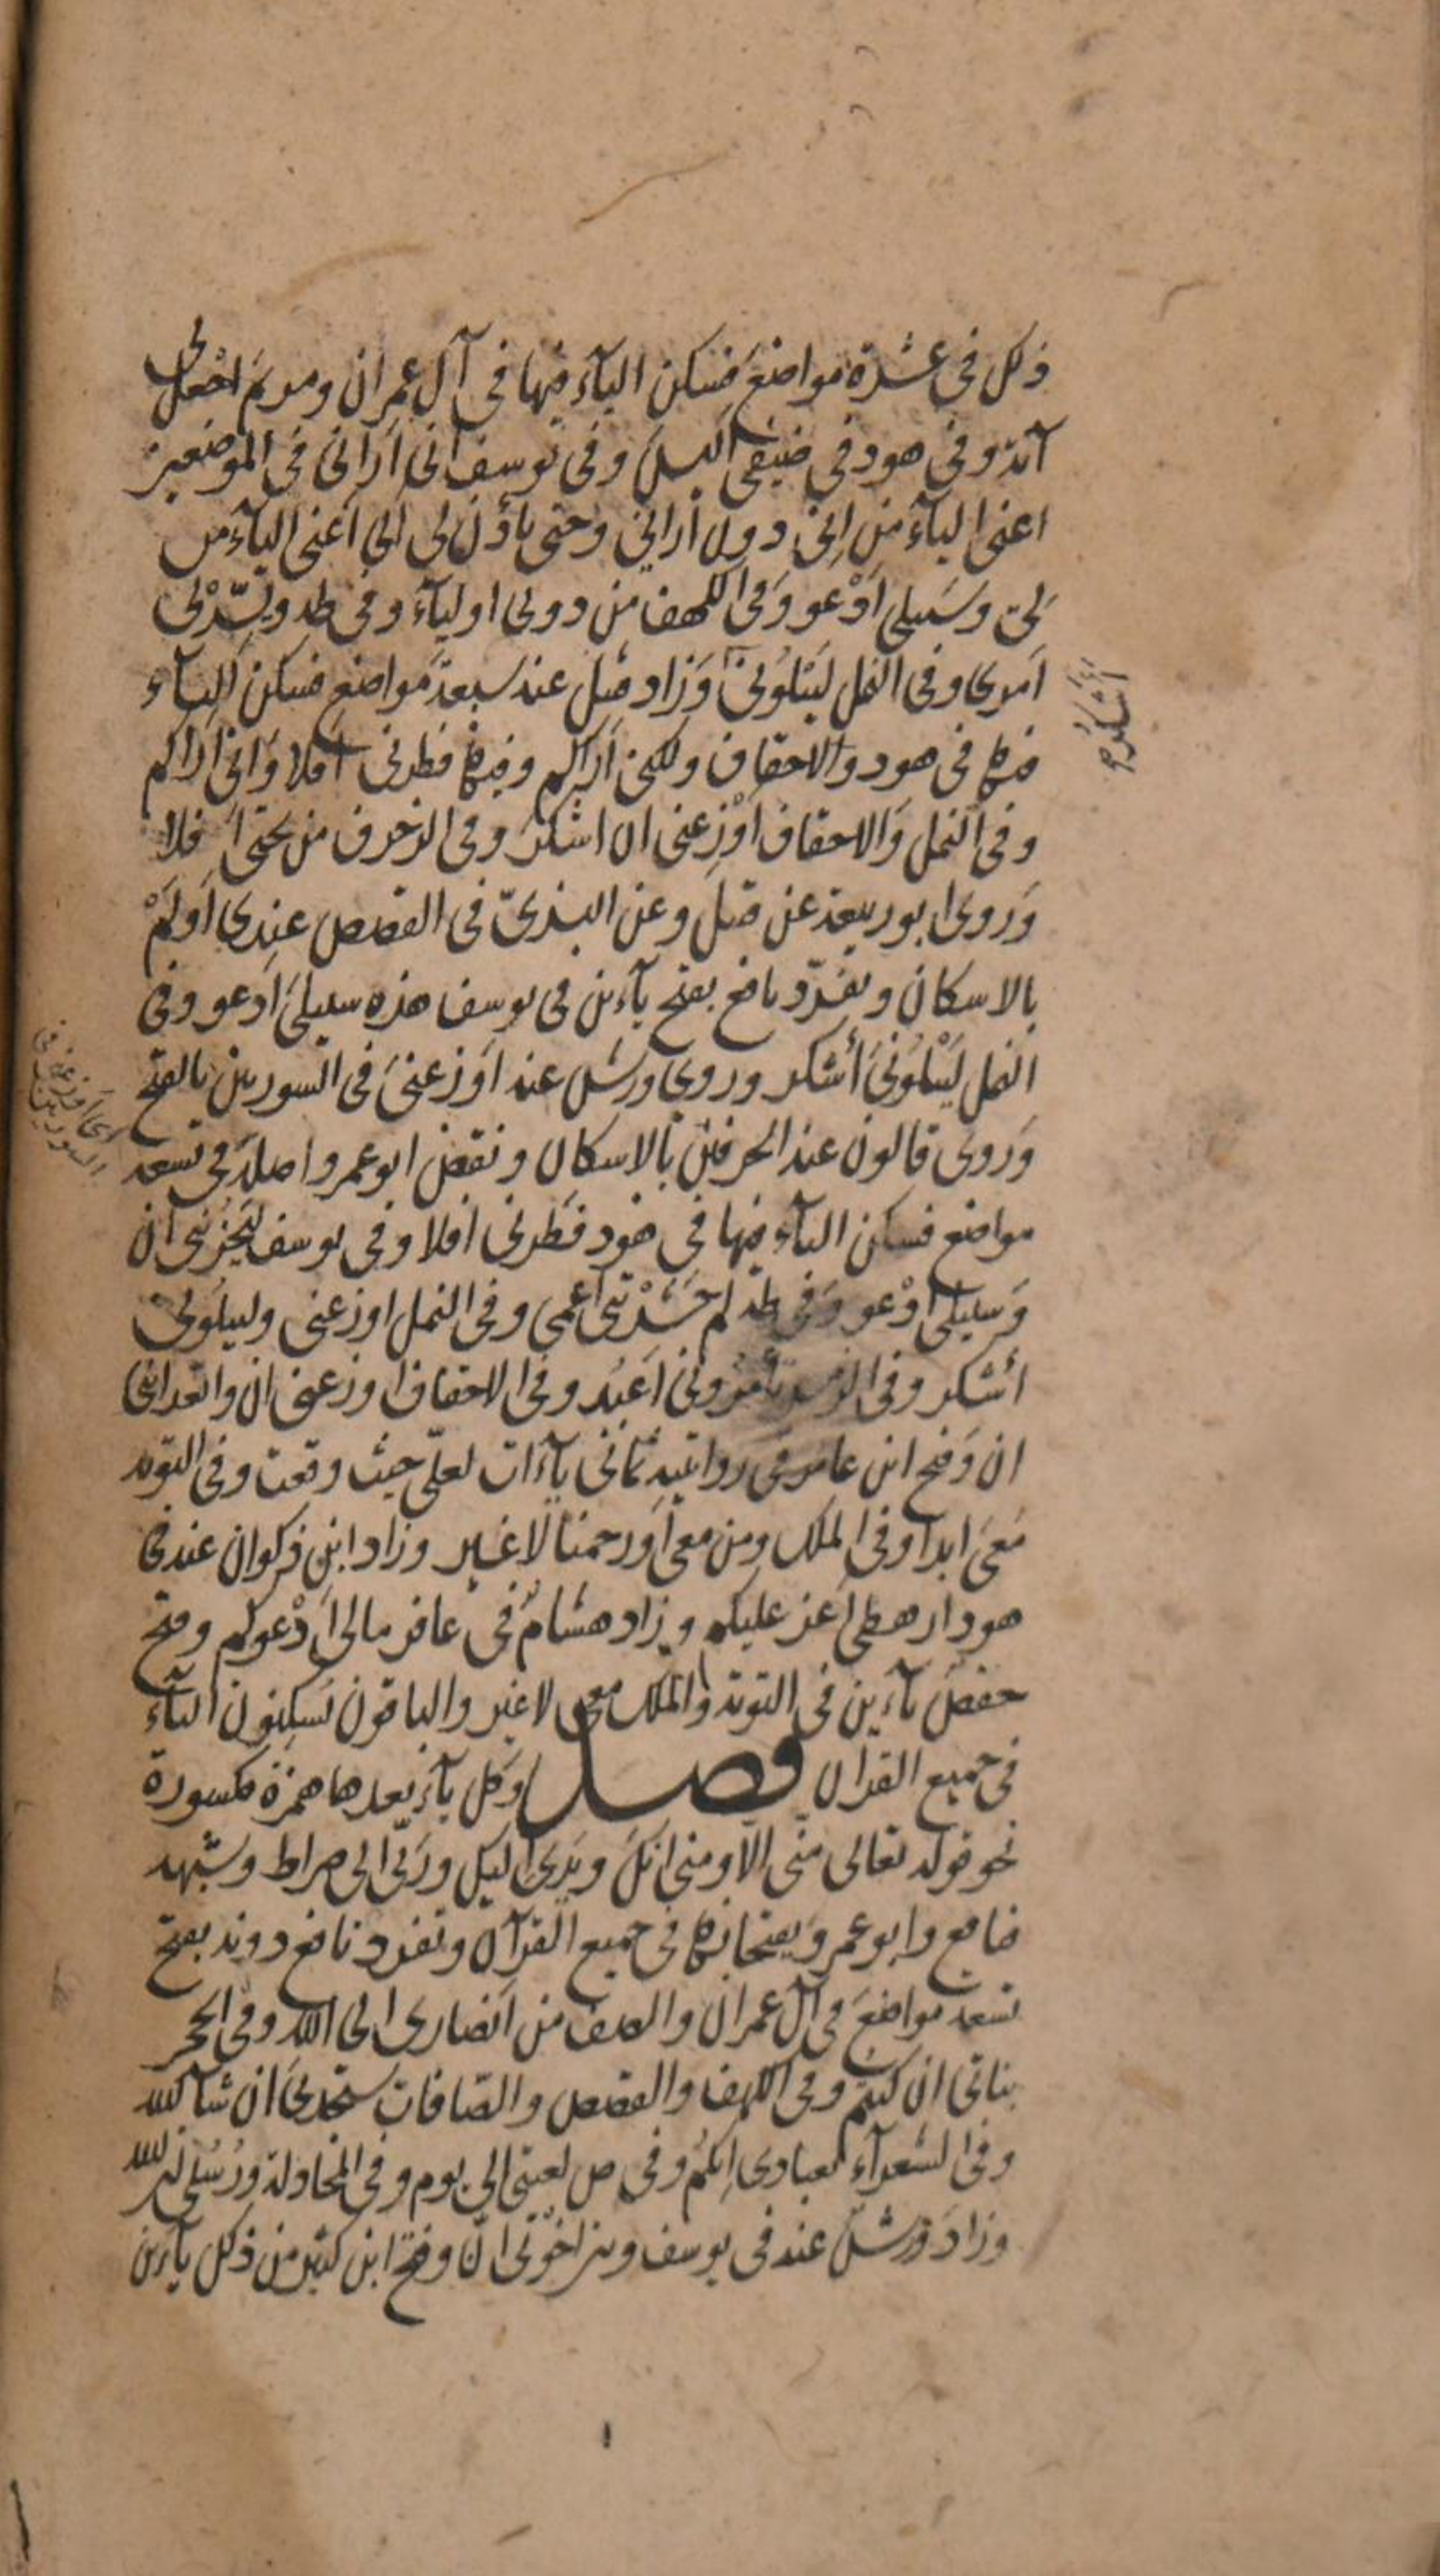 ذلك في عشرة مواضع فسكن اليآء فيها في آل عمران ومريم اجعل لي
آية وفي هود في ضيفي اليس وفي يوسف اني اراني في الموضعين
اعني اليآء من اني دون اراني وحتى ياذن لي ابي اعني اليآء من
لي وسبيلي ادعو وفي الكهف من دوني اوليآء وفي طه ويسّر لي
امري وفي النمل ليبلوني وزاد قنبل عنه سبعة مواضع فسكن اليآء
فيها في هود والاحقاف ولكني اراكم وفيها فطرني افلا واني اراكم
وفي النمل والاحقاف اوزعني ان اشكر وفي الزخرف من تحتي افلا
وروى ابو ربيعة عن قنبل وعن البزيّ في القصص عندي اولم
بالاسكان وتفرّد نافع بفتح يآءين في يوسف هذه سبيلي ادعو وفي
النمل ليبلوني أشكر وروى ورش عنه اوزعني في السورتين بالفتح
وروى قالون عنه الحرفين بالاسكان ونقض ابو عمرو اصله في تسعة
مواضع فسكن اليآء فيها في هود فطرني افلا وفي يوسف ليحزنني ان
وسبيلي ادعو وفي طه لم حشرتني اعمى وفي النمل اوزعني وليبلوني
أشكر وفي الزمر تأمروني اعبد وفي الاحقاف اوزعني ان واتعدانني
ان وفتح ابن عامر في روايتيه ثماني يآءات لعلّي حيث وقعت وفي التوبة
معي ابدا وفي الملك ومن معي اورحمنا لا غير وزاد ابن ذكوان عنه في
هود ارهطي اعز عليكم وزاد هشام في غافر مالي ادعوكم وفتح
حفص يآءين في التوبة والملك معي لا غير والباقون يسكنون اليآء
في جميع القرآن فصل وكل يآء بعدها همزة مكسورة
نحو قوله تعالى منّي الّا ومني انك ويدي اليك وربّي الى صراط وشبهه
فنافع وابو عمرو يفتحانها في جميع القرآن وتفرد نافع دونه بفتح
تسعة مواضع في آل عمران والصف من انصاري الى الله وفي الحجر
بناتي ان كنتم وفي الكهف والقصص والصّافات ستجدني ان شآ الله
وفي الشعرآء بعبادي انكم وفي ص لعنتي الى يوم وفي المجادلة ورسلي ان الله
وزاد ورش عنه في يوسف وبين اخوتي انّ وفتح ابن كثير من ذلك يآءين
أأشكر
اي اوزعني في
السورتين